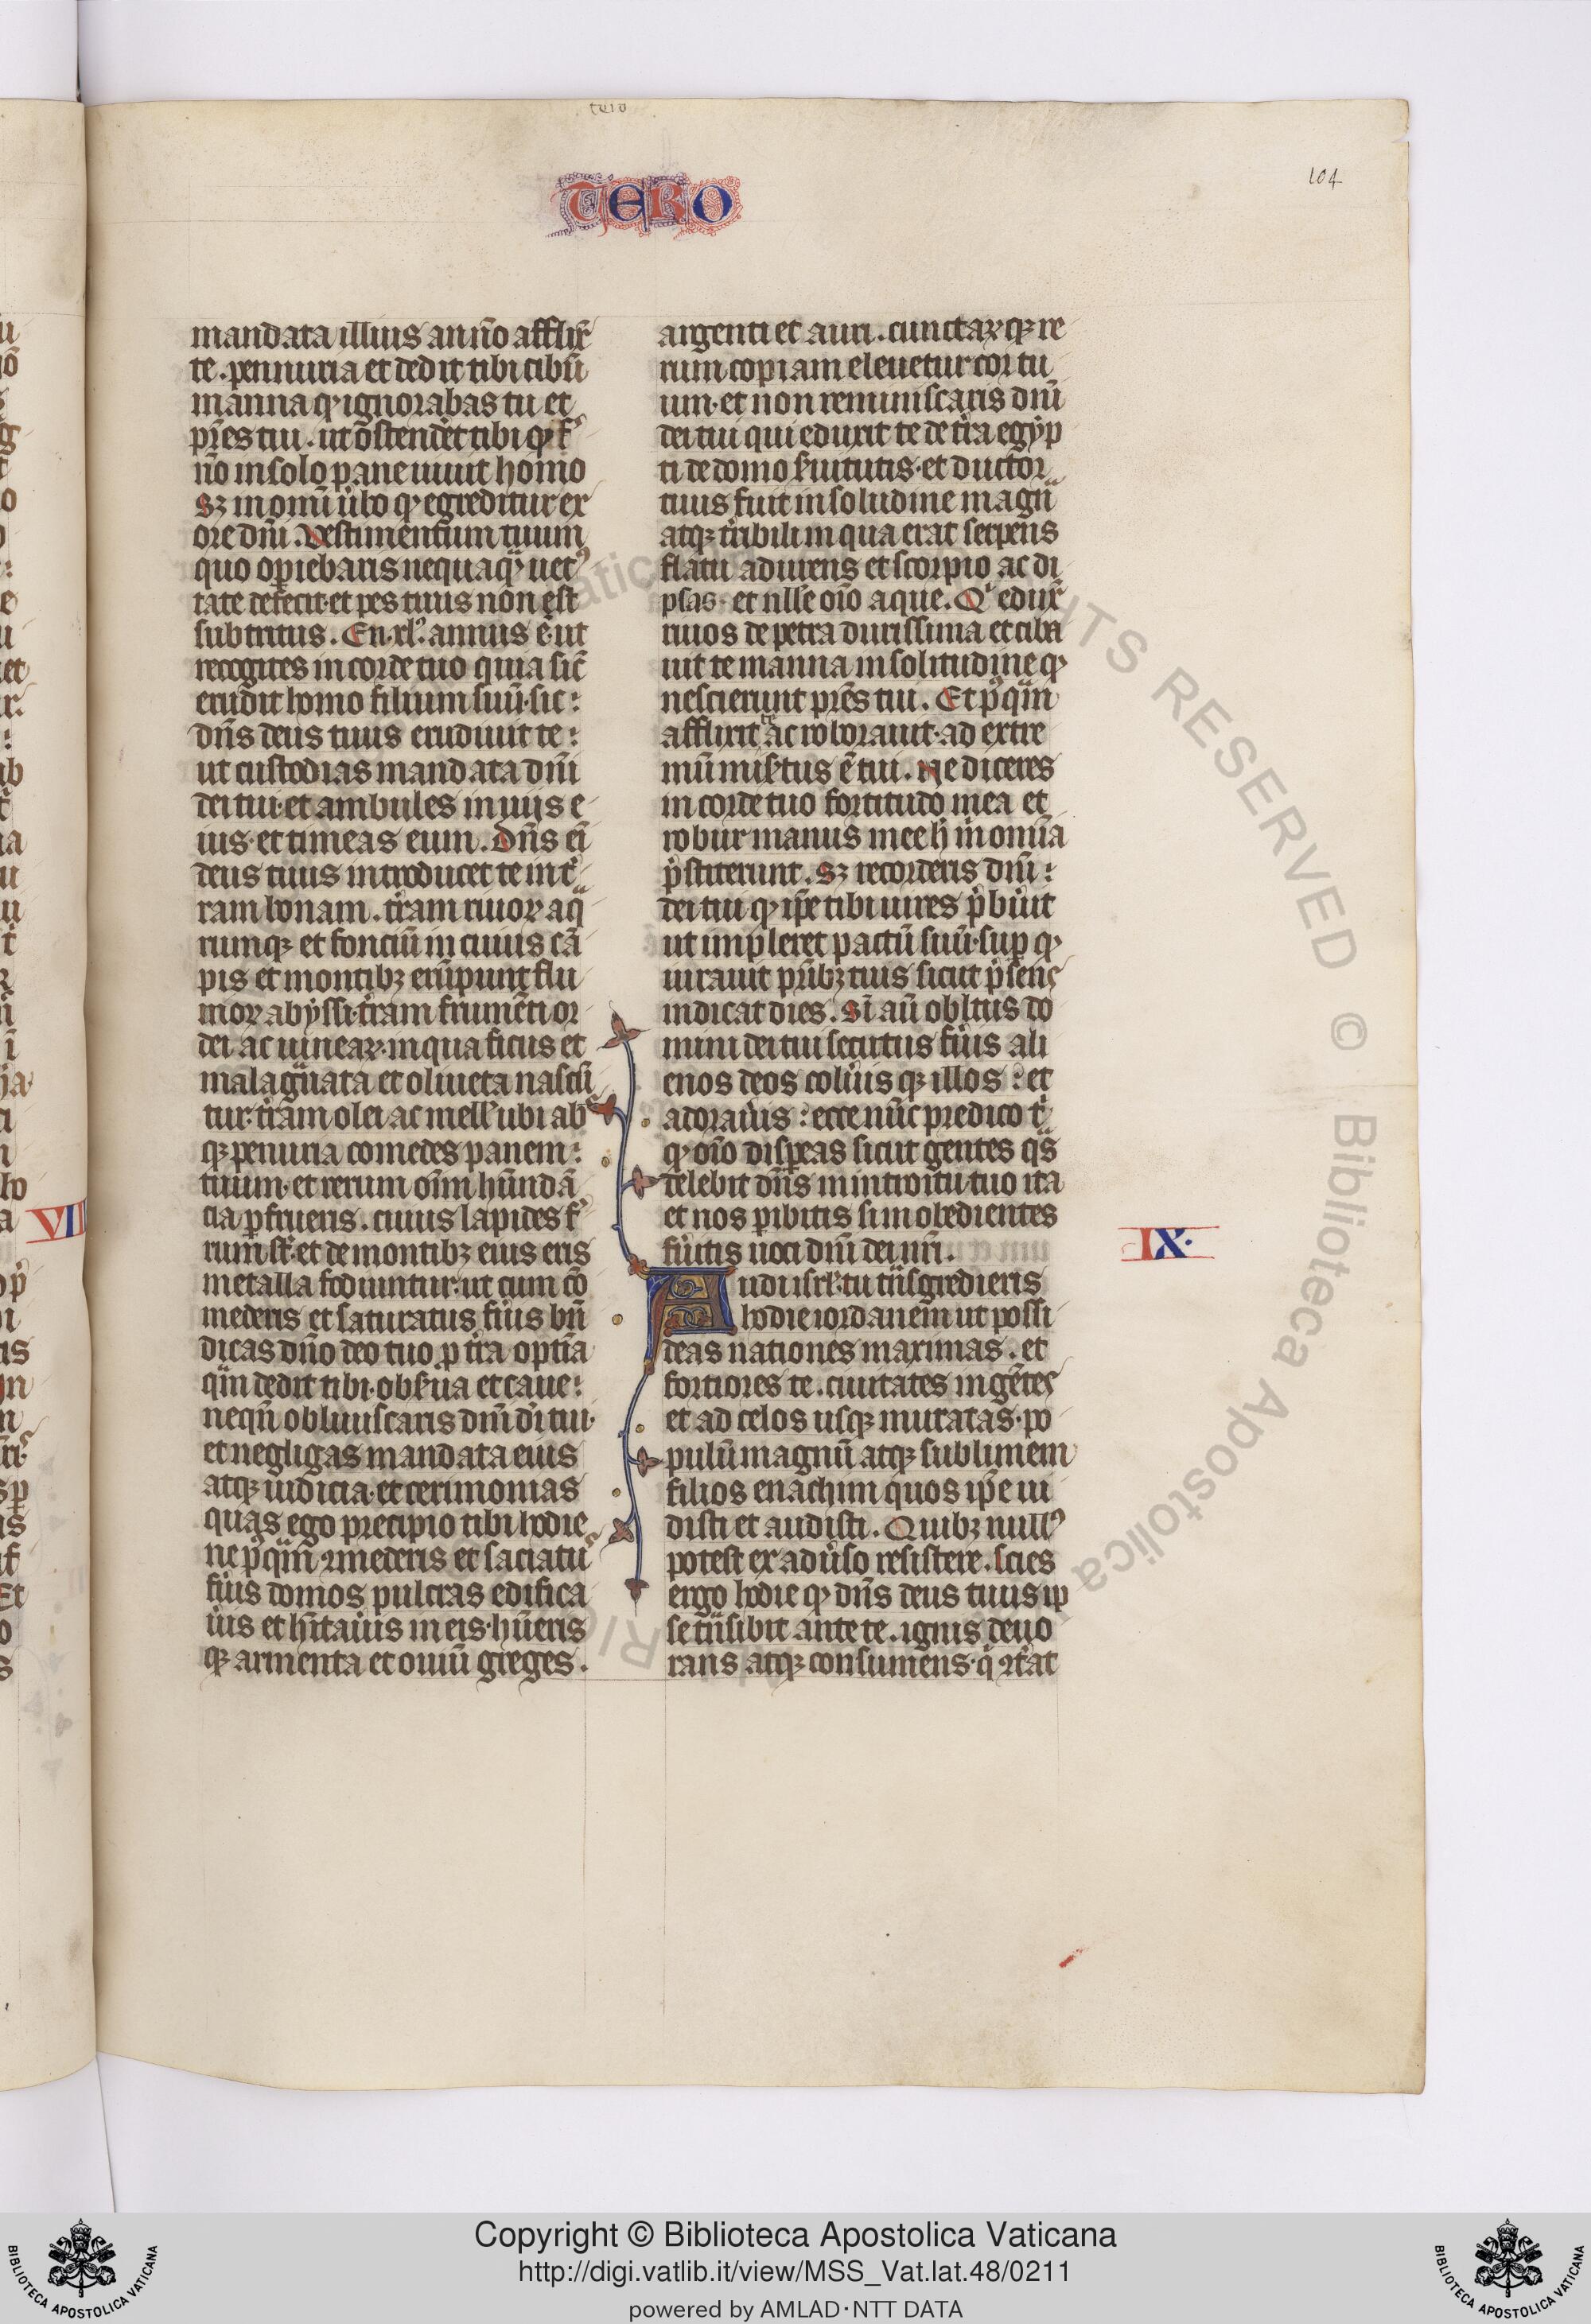 tero
TERO
104
mandata illius an nō afflix̄
te. pennuria et dedit tibi cibū
manna qͥ ignorabas tu et
pr̄es tui. ut ōstenderet tibi qͥ
nō in solo pane uiuit homo
sꝫ in omī ūbo qͥ egreditur ex
ore dn̄i. Vestimentum tuum
quo opiebaris nequaqͣ uetꝰ
tate defecit. et pes tuus non est
subtritus. En. xlꝰ. annus ē. ut
recogites in corde tuo quia sic̄
erudit homo filium suū. sic:
dn̄s deus tuus erudiuit te:
ut custodias mandata dn̄i
dei tui. et ambules in uijs e
ius. et timeas eum. Dn̄s eī
deus tuus introducet te in t̄
ram bonam. t̄ram riuoꝝ aqͣ
rumqꝫ et fonciū in cuius cā
pis et montibꝫ erūpunt flu
uioꝝ abyssi. t̄ram frumēti or
dei ac uineaꝝ. in qua ficus et
malagͣnata et oliueta nascū
tur. t̄ram olei ac mell̄ ubi abs
qꝫ penuria comedes panem:
tuum. et rerum oīm hūndā
cia ꝑfrueris. cuius lapides f
rum st̄. et de montibꝫ eius eris
metalla fodiuntur. ut cum cō
mederis et saturatus fūis bn̄
dicas dn̄o deo tuo ꝓ t̄ra optīa
qͣm dedit tibi. obs̄ua et caue:
neqn̄ obliuiscaris dn̄i di tui.
et negligas mandata eius
atqꝫ iudicia. et cerimonias
quas ego precipio tibi hodie.
ne pꝰqͣm ꝯmederis et saciatꝰ
fūis domos pulcras edifica
ūis et hītaūis in eis. hūeris
qꝫ armenta et ouiū greges.
argenti et auri. cunctaꝝqꝫ re
rum copiam eleuetur cor tu
um. et non reminiscaris dn̄i
dei tui qui eduxit te de t̄ra egyp
ti de domo s̄uitutis. et ductor
tuus fuit in soludine magn̄
atqꝫ t̄ribili in qua erat serpens
flatu adurens et scorpio ac di
psas. et nll̄e oīo aque. Qͥ edux̄
riuos de petra durissima et ciba
uit te manna in solitudine qͥ
nescierunt pr̄es tui. Et pꝰqͣm
afflixit te ac roborauit. ad extre
mū mis̄tus ē tui. Ne diceres
in corde tuo fortitudo mea et
robur manus mee h̄ m̄ omīa
p̄stiterunt. Sꝫ recorderis dn̄i:
dei tui qͥ ip̄e tibi uires p̄buīt
ut impleret pactū suū. suꝑ qͥ
iurauit pr̄ibꝫ tuis sicut p̄sens
indicat dies. Sī aū oblitus do
mini dei tui secutus fūis ali
enos deos colūis qꝫ illos: et
adoraūis: ecce nūc predico t̄
qͥ oīo dispereas sicut gentes qͣs
delebit dn̄s in introitu tuo ita
et nos ꝑibitis si inobedientes
fūitis uoci dn̄i dei nr̄i.
IX.
Audi isrl̄. tu tͣnsgredieris
hodie iordanem ut possi
deas nationes maximas. et
fortiores te. ciuitates ingētes
et ad celos usqꝫ muratas. po
pulū magnū atqꝫ sublimem
filios enachim quos ip̄e ui
disti et audisti. Quibꝫ nullꝰ
potest ex aduso resistere. scies
ergo hodie qͥ dn̄s deus tuus ip
se tͣnsibit ante te. ignis deuo
rans atqꝫ consumens. q̄ ꝯtāt
VII
Copyright © Biblioteca Apostolica Vaticana
http://digi.vatlib.it/view/MSS_Vat.lat.48/0211
powered by AMLAD·NTT DATA
BIBLIOTECA APOSTOLICA VATICANA
BIBLIOTECA APOSTOLICA VATICANA